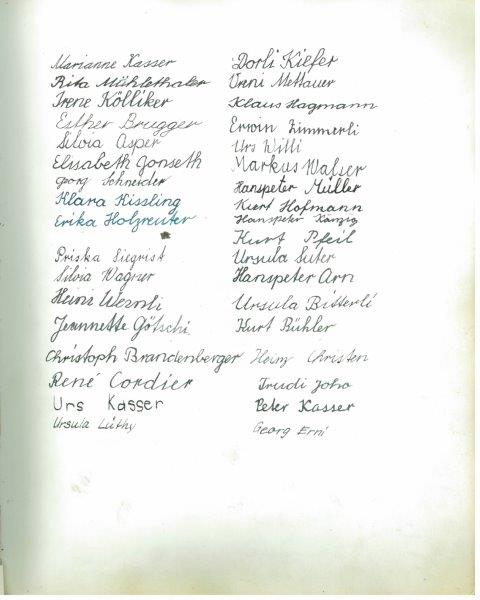 Marianne Kasser
Rita Mühlethaler
Irene Kölliker
Esther Brugger
Silvia Asper
Elisabeth Gonseth
Georg Schneider
Klara Kissling
Erika Holzreuter
Priska Siegrist
Silvia Wagner
Heini Wernli
Jeannette Götschi
Christoph Brandenberger
René Cordier
Urs Kasser
Ursula Lüthy
Dorli Kiefer
Vreni Mettauer
Klaus Hagmann
Erwin Zimmerli
Urs Willi
Markus Walser
Hanspeter Müller
Kurt Hofmann
Hanspeter Känzig
Kurt Pfeil
Ursula Suter
Hanspeter Arn
Ursula Bitterli
Kurt Bühler
Heinz Christen
Trudi Joho
Peter Kasser
Georg Erni